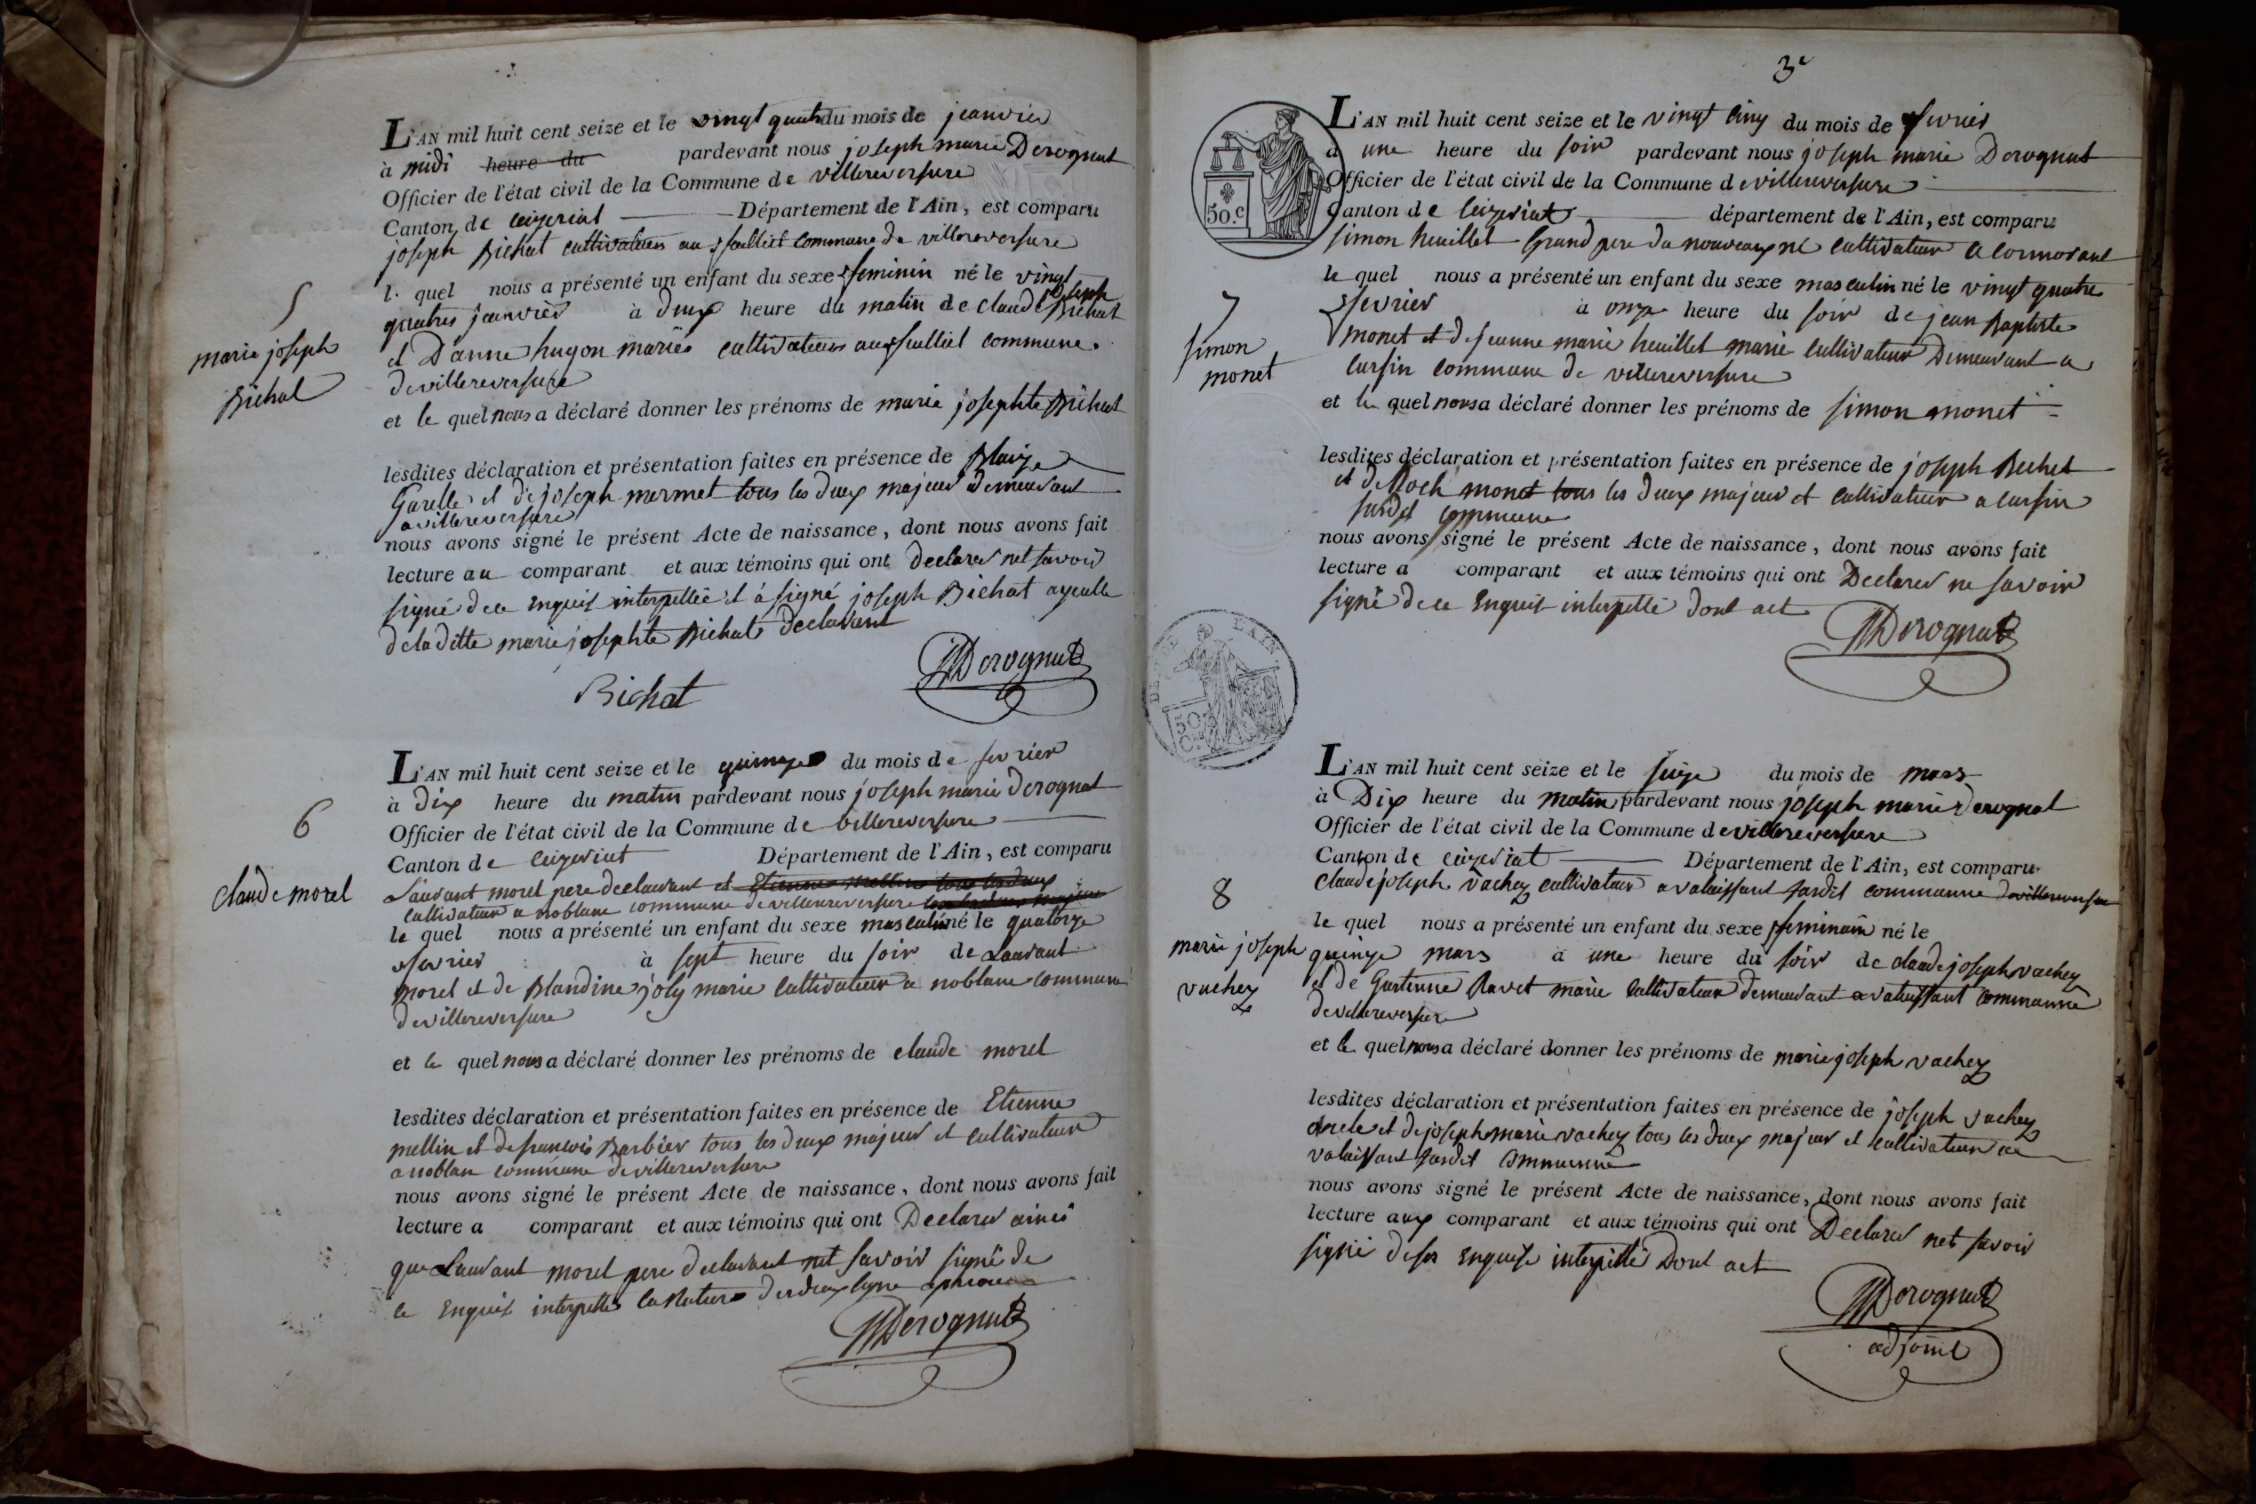 5
marie joseph
Bichat
L'AN mil huit cent seize et le vingt quatre du mois de jeanvier
à midi heure du pardevant nous joseph marie Derognat
Officier de l'état civil de la Commune de villereversure
Canton de ceizeriat Département de l'Ain, est comparu
joseph Bichat cultivateur au commune de villereversure
l. quel nous a présenté un enfant du sexe feminin né le vingt
quatres jeanvier à deux heure du matin de claude joseph Bichat
et D'anne hugon mariés cultivateurs au commune
de villereversure
et le quel nous a déclaré donner les prénoms de marie josephte Bichat
lesdites déclaration et présentation faites en présence de Blaize
Garelle et de joseph mermet tous les deux majeur demeurant
a villereversure
nous avons signé le présent Acte de naissance, dont nous avons fait
lecture au comparant et aux témoins qui ont Declarer net savoir
signé de ce Enquis interpellée et à signé joseph Bichat ayeulle
de la ditte marie josephte Bichat declarant
Bichat
JMDerognat
6
claude morel
L'AN mil huit cent seize et le quinze du mois de fevrier
à dix heure du matin pardevant nous joseph marie Derognat
Officier de l'état civil de la Commune de villereversure
Canton de ceizeriat Département de l'Ain, est comparu
Laurant morel pere declarant et Etienne mellin tous les deux
cultivateur a noblane commune de villereversure
le quel nous a présenté un enfant du sexe masculin né le quatorze
fevrier à sept heure du soir de Laurant
morel et de Blandine joly marie cultivateur a noblane commune
de villereversure
et le quel nous a déclaré donner les prénoms de claude morel
lesdites déclaration et présentation faites en présence de Etienne
mellin et de francois Barbier tous les deux majeur et cultivateur
a noblane commune de villereversure
nous avons signé le présent Acte de naissance, dont nous avons fait
lecture a comparant et aux témoins qui ont Declarer ainsi
que Laurant morel pere declarant net savoir signé de
ce Enquis interpellés la Rature deux ligne
JMDerognat
3e
50.c
7
simon
monet
L'AN mil huit cent seize et le vingt cinq du mois de fevrier
à une heure du soir pardevant nous joseph marie Derognat
Officier de l'état civil de la Commune de villereversure
Canton de Ceizeriat département de l'Ain, est comparu
simon heuillet Grand pere du nouveaux né cultivateur a cormorant
le quel nous a présenté un enfant du sexe masculin né le vingt quatre
fevrier à onze heure du soir de jean Baptiste
monet et de jeanne marie heuillet marié cultivateur Demeurant a
cursin commune de villereversure
et le quel nous a déclaré donner les prénoms de simon monet
lesdites déclaration et présentation faites en présence de joseph Bechet
et de Roch monet tous les deux majeur et cultivateur a cursin
susdit commune
nous avons signé le présent Acte de naissance, dont nous avons fait
lecture a comparant et aux témoins qui ont Declarer ne savoir
signé de ce Enquis interpellé dont act
JMDerognat
50
C.
AIN
8
marie joseph
vachez
L'AN mil huit cent seize et le seize du mois de mars
à Dix heure du matin pardevant nous joseph marie Derognat
Officier de l'état civil de la Commune de villereversure
Canton de ceizeriat Département de l'Ain, est comparu
claude joseph vachez cultivateur a valaissant susdit commune de villereversure
le quel nous a présenté un enfant du sexe feminin né le
quinze mars à une heure du soir de claude joseph vachez
et de Gustinne Ravet marié cultivateur demeurant a valaissant commune
de villereversure
et le quel nous a déclaré donner les prénoms de marie joseph vachez
lesdites déclaration et présentation faites en présence de joseph vachez
oncle et de joseph marie vachez tous les deux majeur et cultivateur a
valaissant susdit commune
nous avons signé le présent Acte de naissance, dont nous avons fait
lecture aux comparant et aux témoins qui ont Declarer net savoir
signé de ce Enquis interpellé Dont act
JMDerognat
adjoint